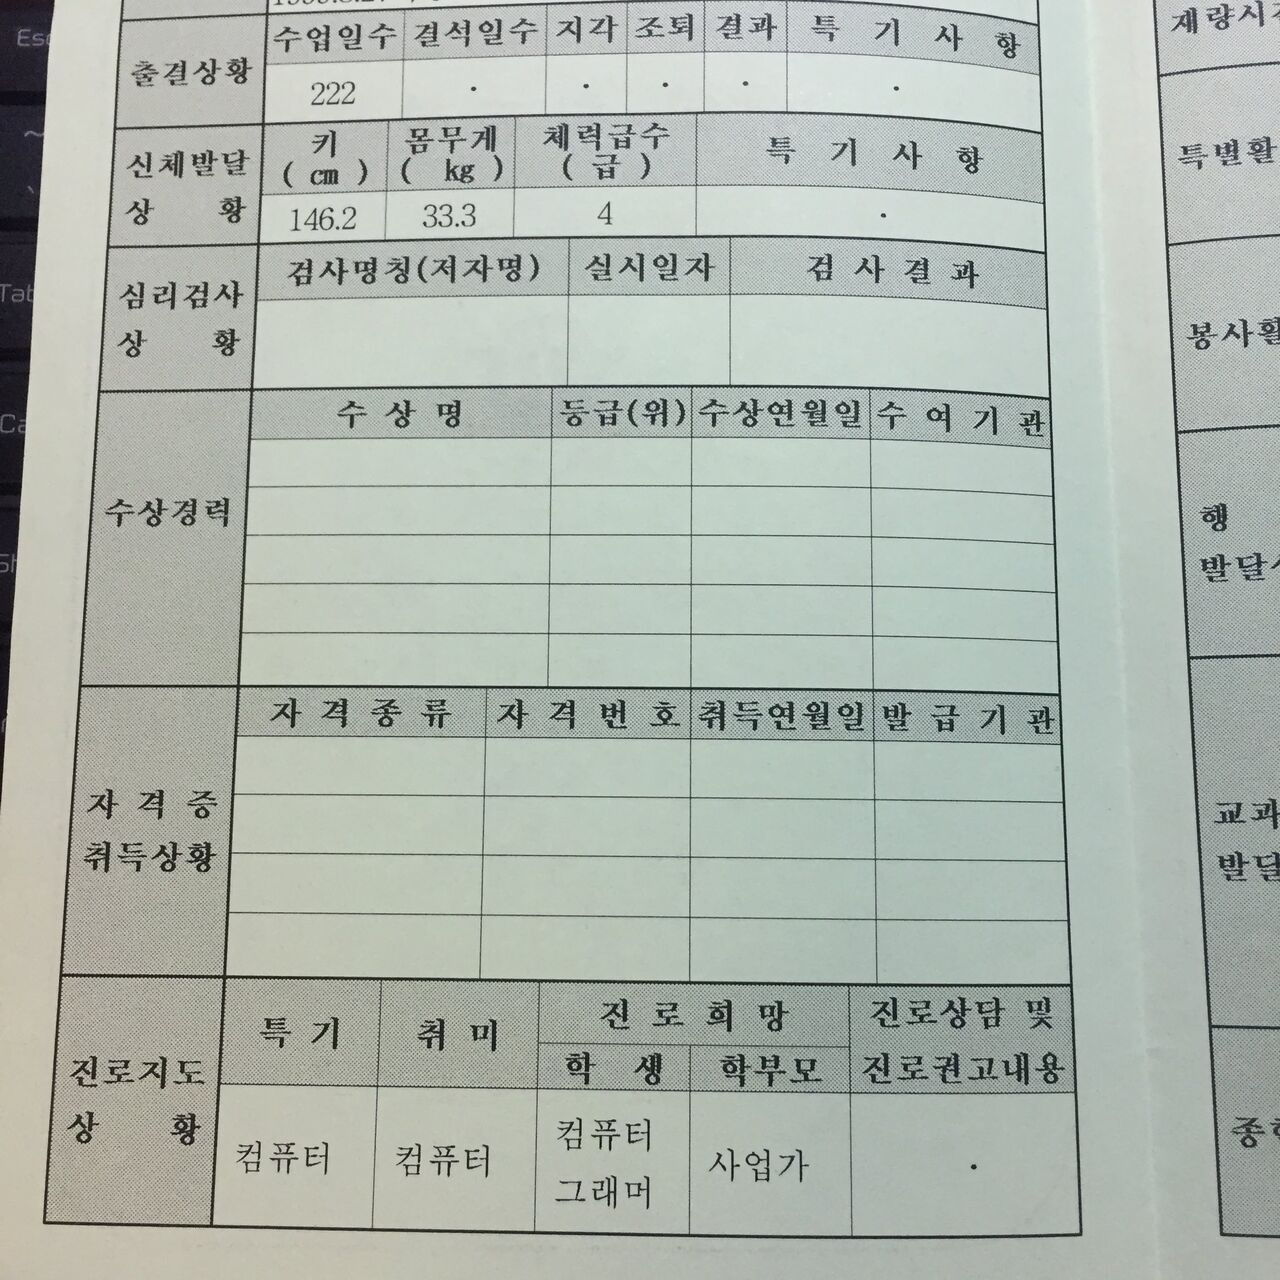 출결상황
수업일수 결석일수 지각 조퇴 결과 특 기 사 항
222 · · · · ·
신체발달
상 황
키
( cm )
몸무게
( kg )
체력급수
( 급 )
특 기 사 항
146.2 33.3 4 ·
심리검사
상 황
검사명칭(저자명) 실시일자 검 사 결 과
수상경력
수 상 명 등급(위) 수상연월일 수 여 기 관
자 격 증
취득상황
자 격 종 류 자 격 번 호 취득연월일 발 급 기 관
진로지도
상 황
특 기 취 미 진 로 희 망
학 생 학부모
진로상담 및
진로권고내용
컴퓨터 컴퓨터
컴퓨터
그래머
사업가 ·
재량시
특별활
봉사활
행
발달
교과
발달
Esc
Tab